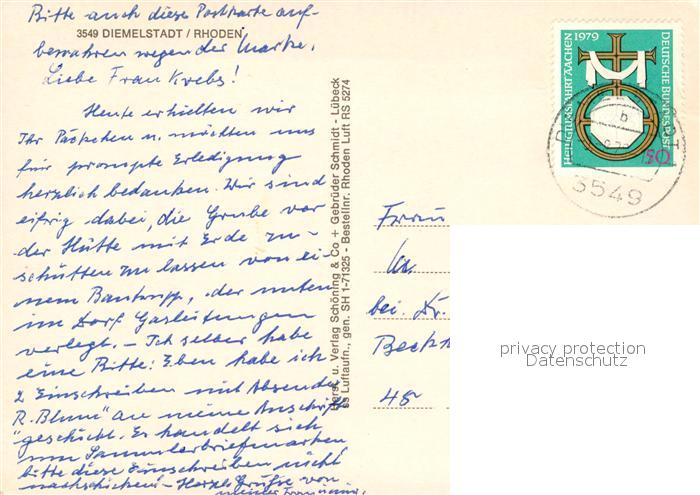 Bitte auch diese Postkarte auf-
3549 DIEMELSTADT / RHODEN
bewahren wegen der Marke.
Liebe Frau Krebs!
Heute erhielten wir
Ihr Päckchen u. möchten uns
für prompte Erledigung
herzlich bedanken. Wir sind
eifrig dabei, die Grube vor
der Hütte mit Erde zu-
schütten zu lassen von ei-
nem Bautrupp, der unten
im Dorf Gasleitungen
verlegt. – Ich selber habe
eine Bitte: Eben habe ich
2 Einschreiben mit Absender
"R. Blum" an meine Anschrift
geschickt. Es handelt sich
um Sammlerbriefmarken,
bitte diese Einschreiben nicht
nachschicken! – Herzl. Grüße von
meiner
Herst. u. Verlag Schöning & Co + Gebrüder Schmidt - Lübeck
SS Luftaufn., gen. SH 1-7/1325 - Bestellnr. Rhoden Luft RS 5274
HEILIGTUMSFAHRT AACHEN 1979
DEUTSCHE BUNDESPOST
50
b
3549
Frau
bei Dr.
48
privacy protection
Datenschutz